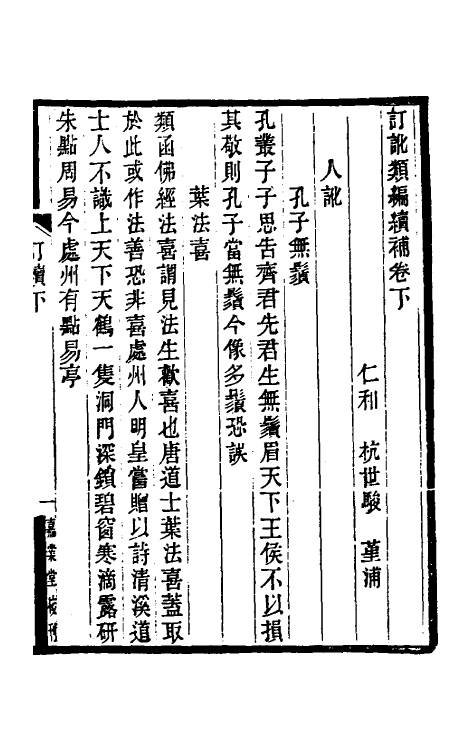 訂訛類編續補卷下
仁和 杭世駿 堇浦
人訛
孔子無鬚
孔叢子子思告齊君先君生無鬚眉天下王侯不以損
其敬則孔子當無鬚今像多鬚恐誤
葉法喜
類函佛經法喜謂見法生歡喜也唐道士葉法喜蓋取
於此或作法善恐非喜處州人明皇嘗贈以詩清溪道
士人不識上天下天鶴一隻洞門深鎖碧窗寒滴露研
朱點周易今處州有點易亭
訂續下
一
嘉業堂校刊